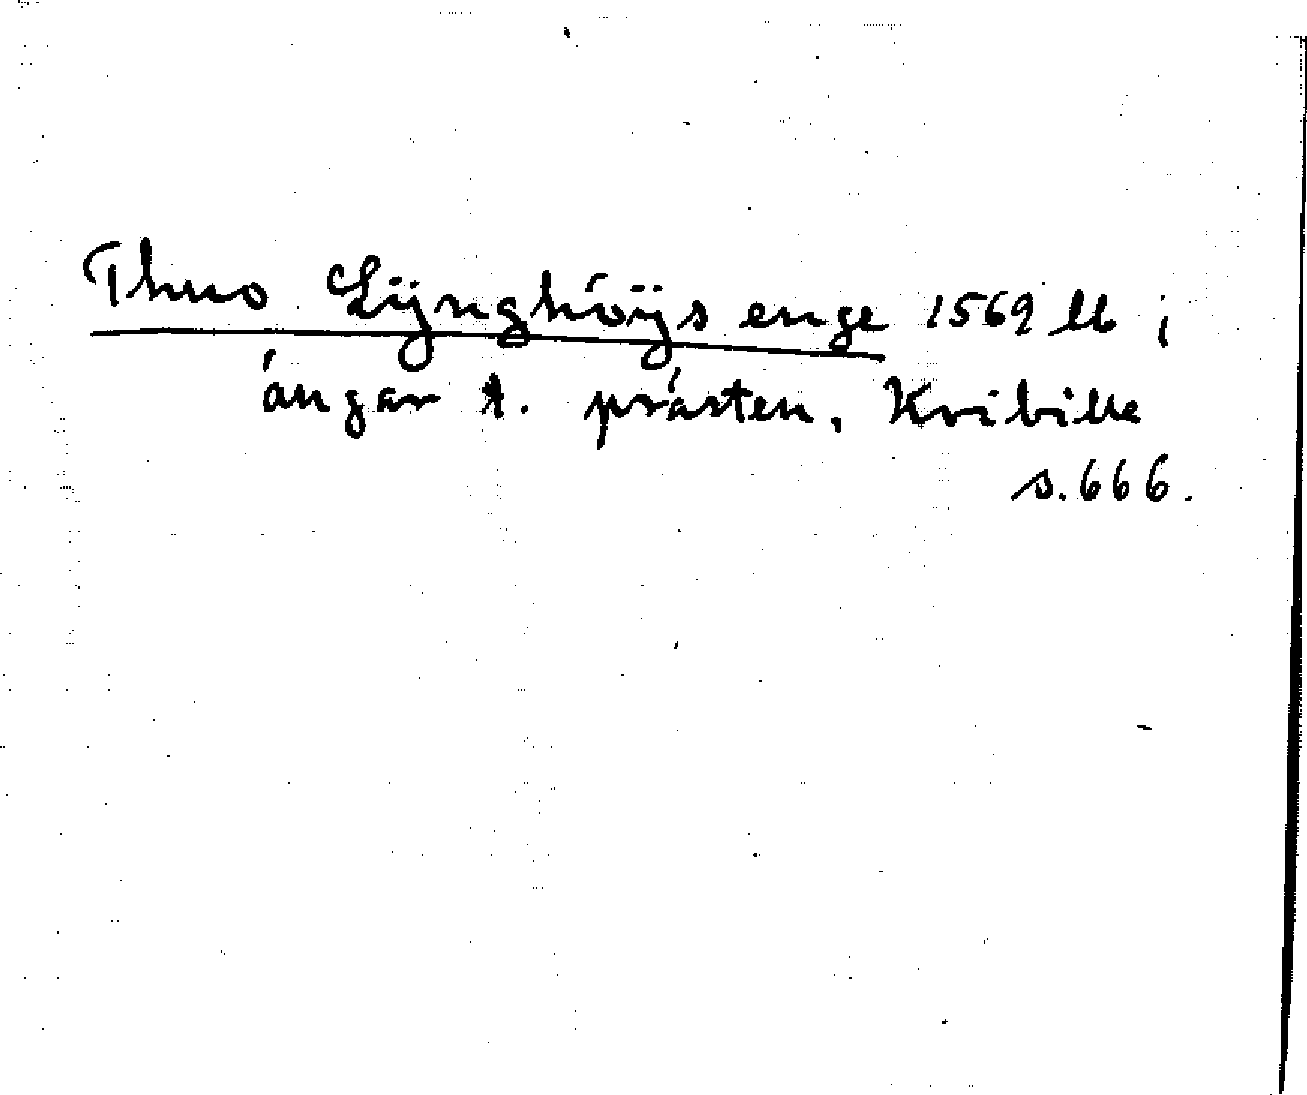 Thuo Lÿnghöÿs enge 1569 lb i
ängar t. prästen, Kvibille
s. 666.